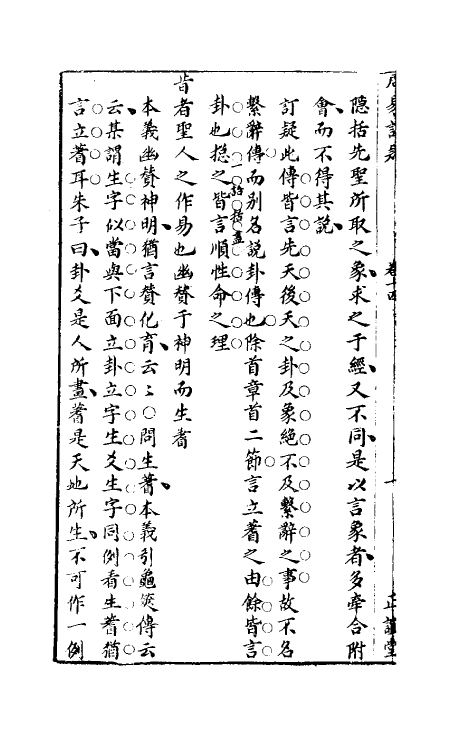 周易訂疑 卷十四 十 正誼堂
隱括先聖所取之象求之于經又不同是以言象者多牽合附
會而不得其說
訂疑此傳皆言先天後天之卦及象絕不及繫辭之事故不名
繫辭傳而別名說卦傳也除首章首二節言立蓍之由餘皆言
卦也總之皆言順性命之理
一語括盡
昔者聖人之作易也幽贊于神明而生蓍
本義幽贊神明猶言贊化育云〻○問生蓍本義引龜筴傳云
云某謂生字似當與下面立卦立字生爻生字同例看生蓍猶
言立蓍耳朱子曰卦爻是人所畫蓍是天地所生不可作一例